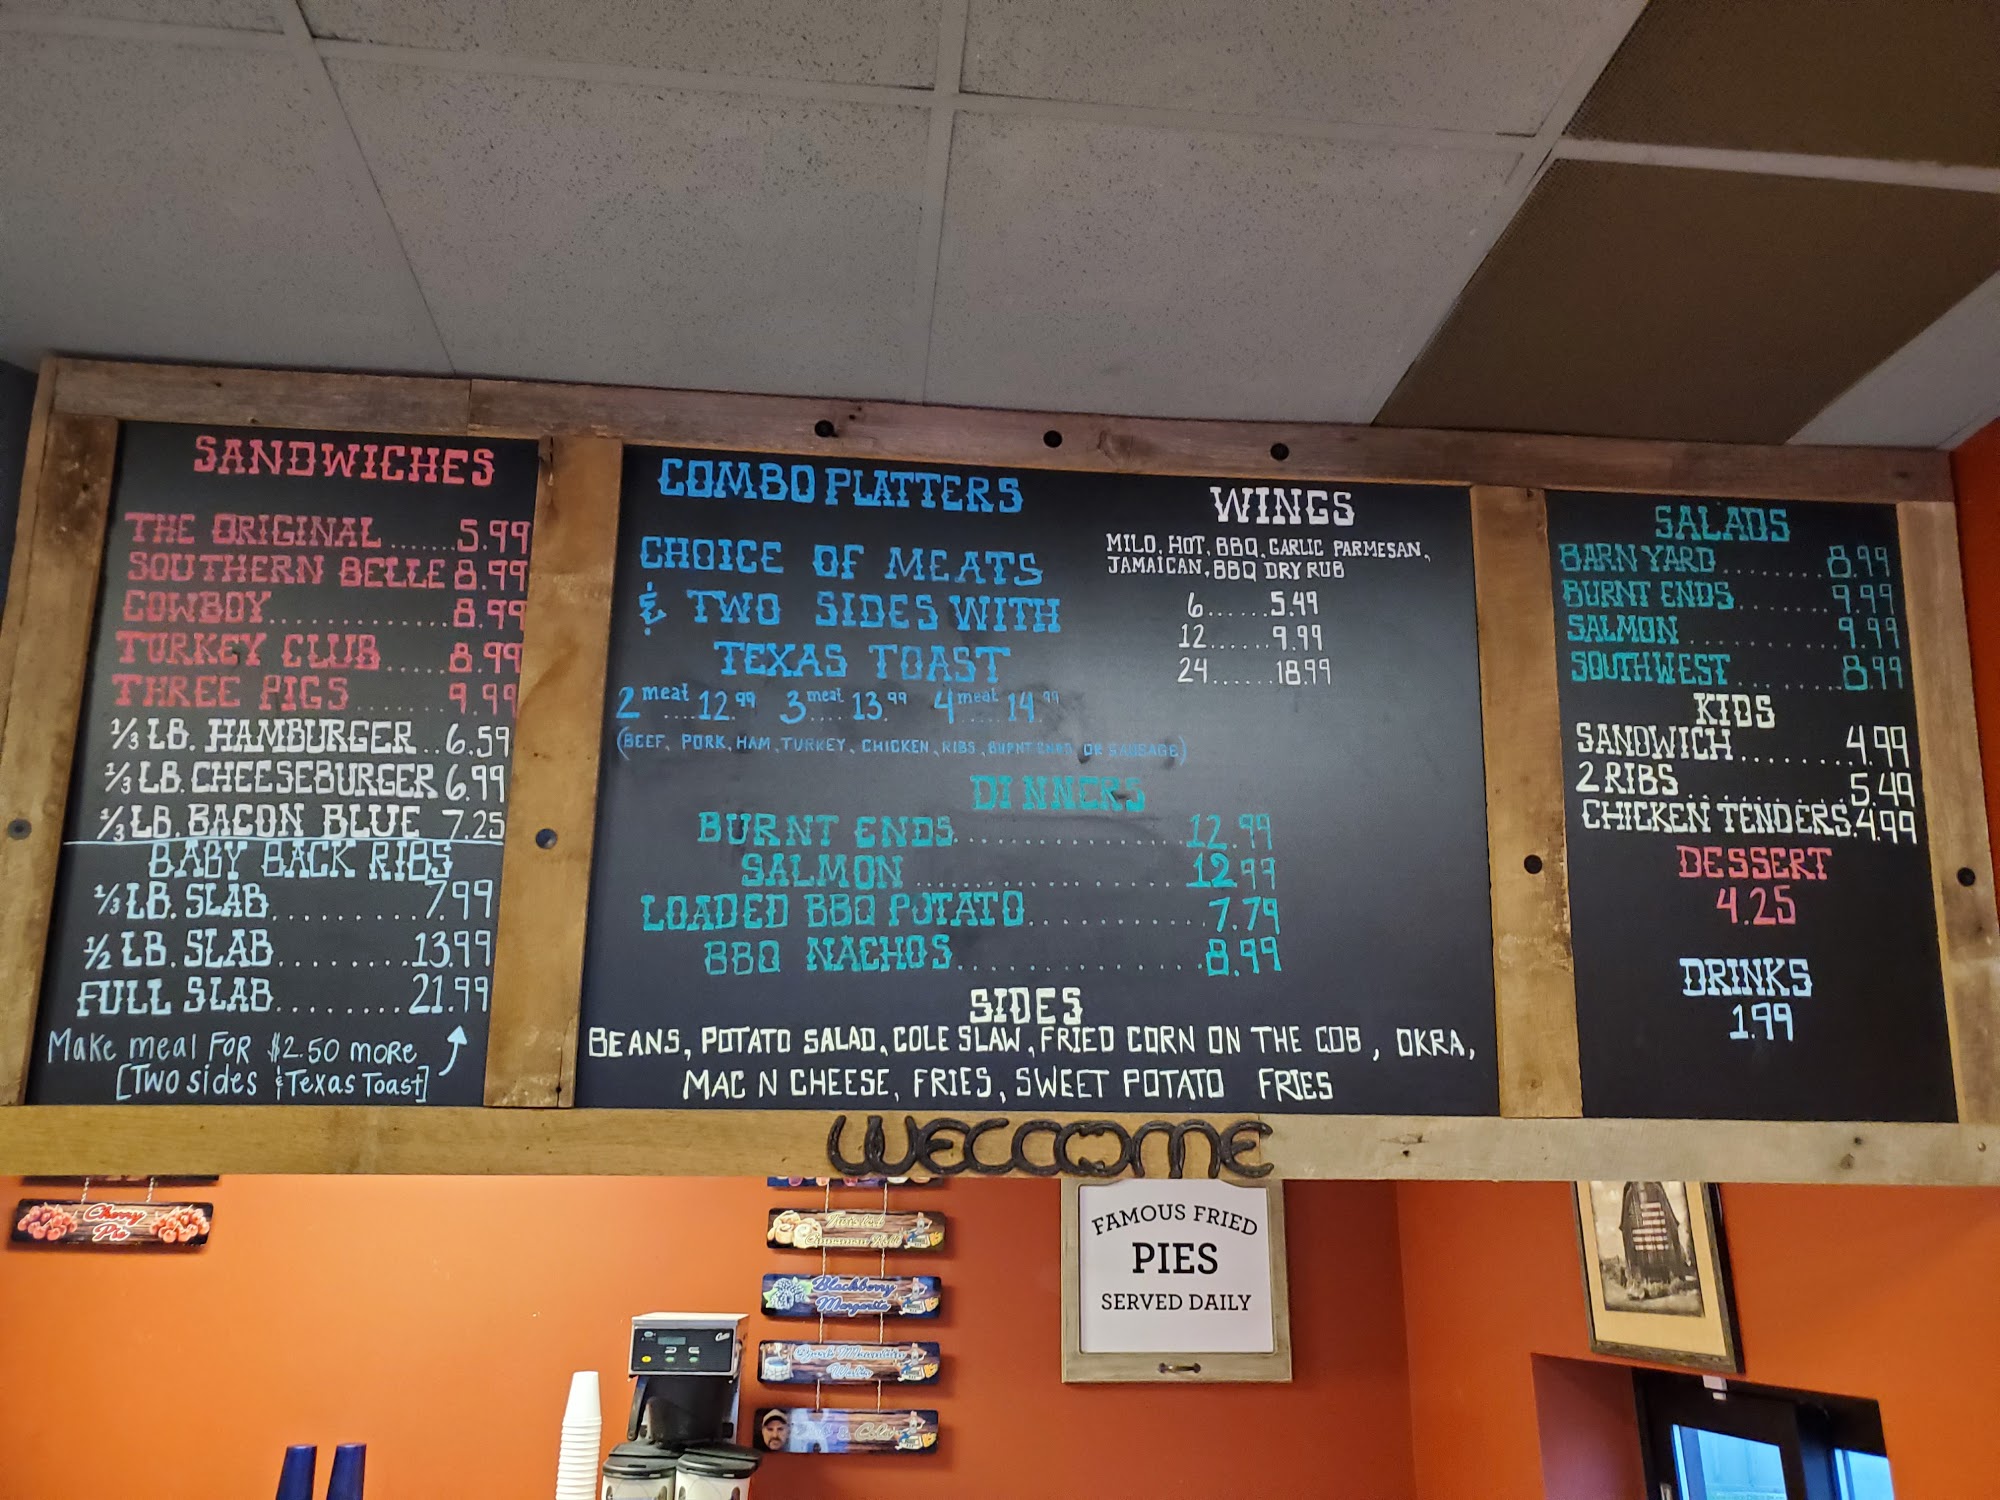 SANDWICHES
THE ORIGINAL......5.99
SOUTHERN BELLE 8.99
COWBOY.............8.99
TURKEY CLUB.....8.99
THREE PIGS.......9.99
1/3 LB. HAMBURGER..6.59
1/3 LB. CHEESEBURGER 6.99
1/3 LB. BACON BLUE 7.25
BABY BACK RIBS
1/3 LB. SLAB..........7.99
1/2 LB. SLAB.........13.99
FULL SLAB.........21.99
Make meal FOR $2.50 more
[Two sides & Texas Toast]
COMBO PLATTERS
CHOICE OF MEATS
& TWO SIDES WITH
TEXAS TOAST
2 meat....12.99 3 meat....13.99 4 meat....14.99
(BEEF, PORK, HAM, TURKEY, CHICKEN, RIBS, BURNT ENDS, OR SAUSAGE)
WINGS
MILD, HOT, BBQ, GARLIC PARMESAN,
JAMAICAN, BBQ DRY RUB
6......5.49
12......9.99
24......18.99
DINNERS
BURNT ENDS................12.99
SALMON..................12.99
LOADED BBQ POTATO............7.79
BBQ NACHOS.................8.99
SIDES
BEANS, POTATO SALAD, COLE SLAW, FRIED CORN ON THE COB, OKRA,
MAC N CHEESE, FRIES, SWEET POTATO FRIES
SALADS
BARN YARD........8.99
BURNT ENDS.......9.99
SALMON..........9.99
SOUTHWEST.......8.99
KIDS
SANDWICH........4.99
2 RIBS..........5.49
CHICKEN TENDERS.4.99
DESSERT
4.25
DRINKS
1.99
WELCOME
Cherry
Pie
Twisted
Cinnamon Roll
Blackberry
Margarita
FAMOUS FRIED
PIES
SERVED DAILY